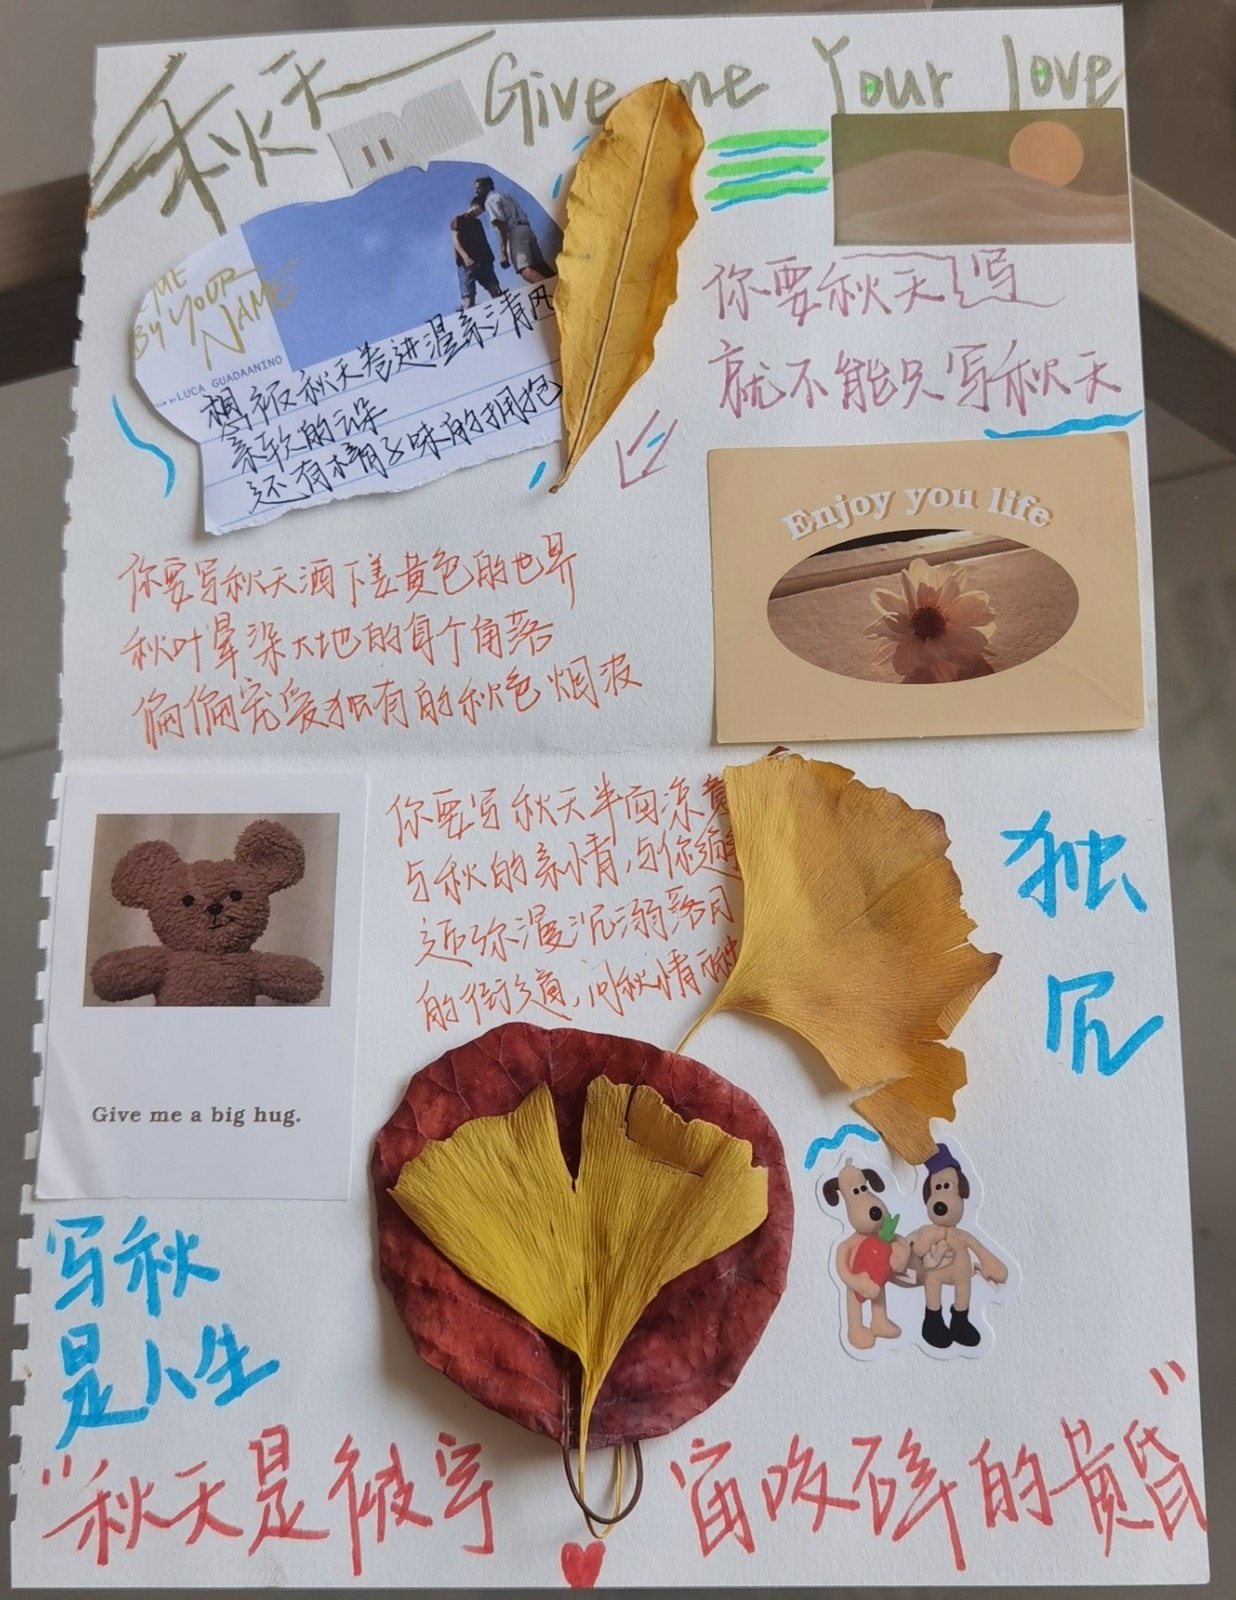 秋天 Give me Your love
ME
BY YOUR
NAME
LUCA GUADAANINO
想被秋天卷进温柔清风
亲软的云朵
还有橘子味的拥抱
你要秋天写
就不能只写秋天
Enjoy you life
你要写秋天洒下姜黄色的世界
秋叶晕染大地的每个角落
偏偏宠爱独有的秋色烟波
你要写秋天半面凉意
与秋的亲情,与你
近弥漫沉溺落日
的街道,问秋情
独
冗
Give me a big hug.
写秋
是人生
"秋天是被宇宙咬碎的黄昏"